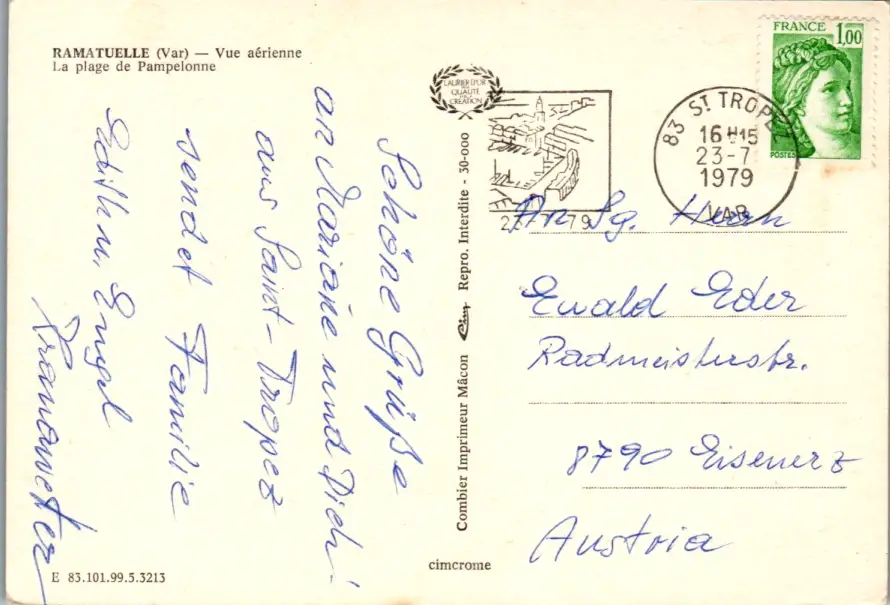 RAMATUELLE (Var) — Vue aérienne
La plage de Pampelonne
Schöne Grüße
an Mariane und Dich!
aus Saint-Tropez
sendet Familie
Edith u. Engel
LAURIER D'OR
QUALITÉ
CRÉATION
Combier Imprimeur Mâcon Cim Repro. Interdite - 30-000
FRANCE 1,00
POSTES
83 ST TROPEZ
16 H15
23-7
1979
VAR
An Sg. Herrn
Ewald Eder
Radmeisterstr.
8790 Eisenerz
Austria
cimcrome
E 83.101.99.5.3213